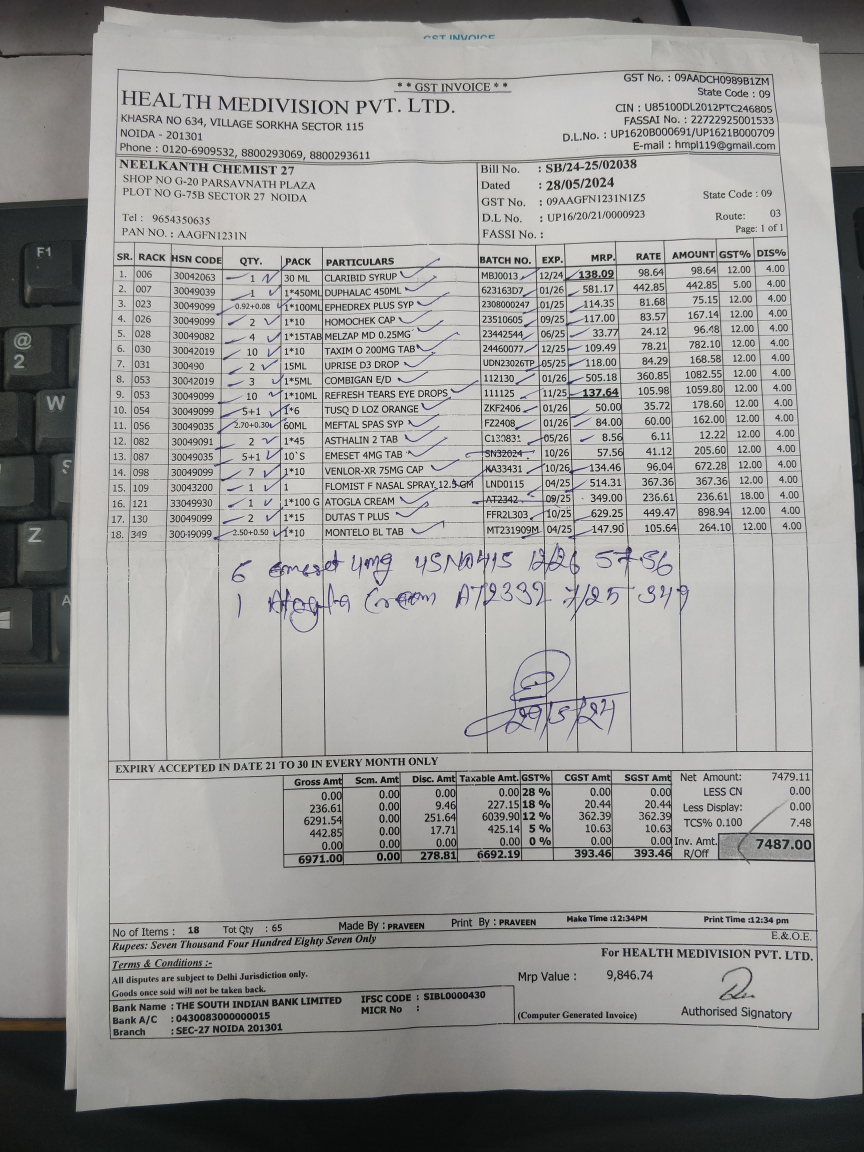 GST INVOICE
* * GST INVOICE * *
GST No. : 09AADCH0989B1ZM
State Code : 09
HEALTH MEDIVISION PVT. LTD.
CIN : U85100DL2012PTC246805
KHASRA NO 634, VILLAGE SORKHA SECTOR 115
FASSAI No. : 22722925001533
NOIDA - 201301
D.L.No. : UP1620B000691/UP1621B000709
Phone : 0120-6909532, 8800293069, 8800293611
E-mail : hmpl119@gmail.com
NEELKANTH CHEMIST 27
SHOP NO G-20 PARSAVNATH PLAZA
PLOT NO G-75B SECTOR 27 NOIDA
Tel : 9654350635
PAN NO. : AAGFN1231N
Bill No. : SB/24-25/02038
Dated : 28/05/2024
GST No. : 09AAGFN1231N1Z5 State Code : 09
D.L No. : UP16/20/21/0000923 Route: 03
FASSI No. : Page: 1 of 1
SR. RACK HSN CODE QTY. PACK PARTICULARS BATCH NO. EXP. MRP. RATE AMOUNT GST% DIS%
1. 006 30042063 1 30 ML CLARIBID SYRUP MBJ0013 12/24 138.09 98.64 98.64 12.00 4.00
2. 007 30049039 1 1*450ML DUPHALAC 450ML 623163D7 01/26 581.17 442.85 442.85 5.00 4.00
3. 023 30049099 0.92+0.08 1*100ML EPHEDREX PLUS SYP 2308000247 01/25 114.35 81.68 75.15 12.00 4.00
4. 026 30049099 2 1*10 HOMOCHEK CAP 23510605 09/25 117.00 83.57 167.14 12.00 4.00
5. 028 30049082 4 1*15TAB MELZAP MD 0.25MG 23442544 06/25 33.77 24.12 96.48 12.00 4.00
6. 030 30042019 10 1*10 TAXIM O 200MG TAB 24460077 12/25 109.49 78.21 782.10 12.00 4.00
7. 031 300490 2 15ML UPRISE D3 DROP UDN23026TP 05/25 118.00 84.29 168.58 12.00 4.00
8. 053 30042019 3 1*5ML COMBIGAN E/D 112130 01/26 505.18 360.85 1082.55 12.00 4.00
9. 053 30049099 10 1*10ML REFRESH TEARS EYE DROPS 111125 11/25 137.64 105.98 1059.80 12.00 4.00
10. 054 30049099 5+1 1*6 TUSQ D LOZ ORANGE ZKF2406 01/26 50.00 35.72 178.60 12.00 4.00
11. 056 30049035 2.70+0.30 60ML MEFTAL SPAS SYP FZ2408 01/26 84.00 60.00 162.00 12.00 4.00
12. 082 30049091 2 1*45 ASTHALIN 2 TAB C130831 05/26 8.56 6.11 12.22 12.00 4.00
13. 087 30049035 5+1 10`S EMESET 4MG TAB SN32024 10/26 57.56 41.12 205.60 12.00 4.00
14. 098 30049099 7 1*10 VENLOR-XR 75MG CAP KA33431 10/26 134.46 96.04 672.28 12.00 4.00
15. 109 30043200 1 1 FLOMIST F NASAL SPRAY 12.5 GM LND0115 04/25 514.31 367.36 367.36 12.00 4.00
16. 121 33049930 1 1*100 G ATOGLA CREAM AT2342 09/25 349.00 236.61 236.61 18.00 4.00
17. 130 30049099 2 1*15 DUTAS T PLUS FFR2L303 10/25 629.25 449.47 898.94 12.00 4.00
18. 349 30049099 2.50+0.50 1*10 MONTELO BL TAB MT231909M 04/25 147.90 105.64 264.10 12.00 4.00
6 emeset 4mg 4SNA415 12/26 57-56
1 Atogla Cream AT2332 7/25 349
29/5/24
EXPIRY ACCEPTED IN DATE 21 TO 30 IN EVERY MONTH ONLY
Gross Amt Scm. Amt Disc. Amt Taxable Amt. GST% CGST Amt SGST Amt
0.00 0.00 0.00 0.00 28 % 0.00 0.00
236.61 0.00 9.46 227.15 18 % 20.44 20.44
6291.54 0.00 251.64 6039.90 12 % 362.39 362.39
442.85 0.00 17.71 425.14 5 % 10.63 10.63
0.00 0.00 0.00 0.00 0 % 0.00 0.00
6971.00 0.00 278.81 6692.19 393.46 393.46
Net Amount: 7479.11
LESS CN 0.00
Less Display: 0.00
TCS% 0.100 7.48
Inv. Amt. 7487.00
R/Off
No of Items : 18 Tot Qty : 65 Made By : PRAVEEN Print By : PRAVEEN Make Time :12:34PM Print Time :12:34 pm
Rupees: Seven Thousand Four Hundred Eighty Seven Only E.& O.E.
Terms & Conditions :-
All disputes are subject to Delhi Jurisdiction only.
Goods once sold will not be taken back.
Bank Name : THE SOUTH INDIAN BANK LIMITED IFSC CODE : SIBL0000430
Bank A/C : 0430083000000015 MICR No :
Branch : SEC-27 NOIDA 201301
For HEALTH MEDIVISION PVT. LTD.
Mrp Value : 9,846.74
(Computer Generated Invoice) Authorised Signatory
F1
@
2
W
S
Z
A